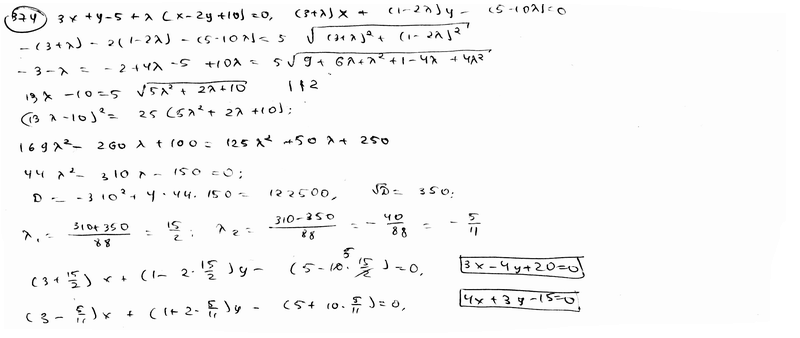 374 3x+y-5+λ(x-2y+10)=0, (3+λ)x + (1-2λ)y - (5-10λ)=0
-(3+λ)-2(1-2λ)-(5-10λ)=5 √((3+λ)²+(1-2λ)²)
-3-λ=-2+4λ-5+10λ=5√(9+6λ+λ²+1-4λ+4λ²)
13λ-10=5 √(5λ²+2λ+10) ↑2
(13λ-10)²=25(5λ²+2λ+10);
169λ²-260λ+100=125λ²+50λ+250
44λ²-310λ-150=0;
D=-310²+4·44·150=122500, √D=350;
λ₁=(310+350)/88=15/2; λ₂=(310-350)/88=-40/88=-5/11
(3+15/2)x+(1-2·15/2)y-(5-10·15/2)=0, 3x-4y+20=0
(3-5/11)x+(1+2·5/11)y-(5+10·5/11)=0, 4x+3y-15=0